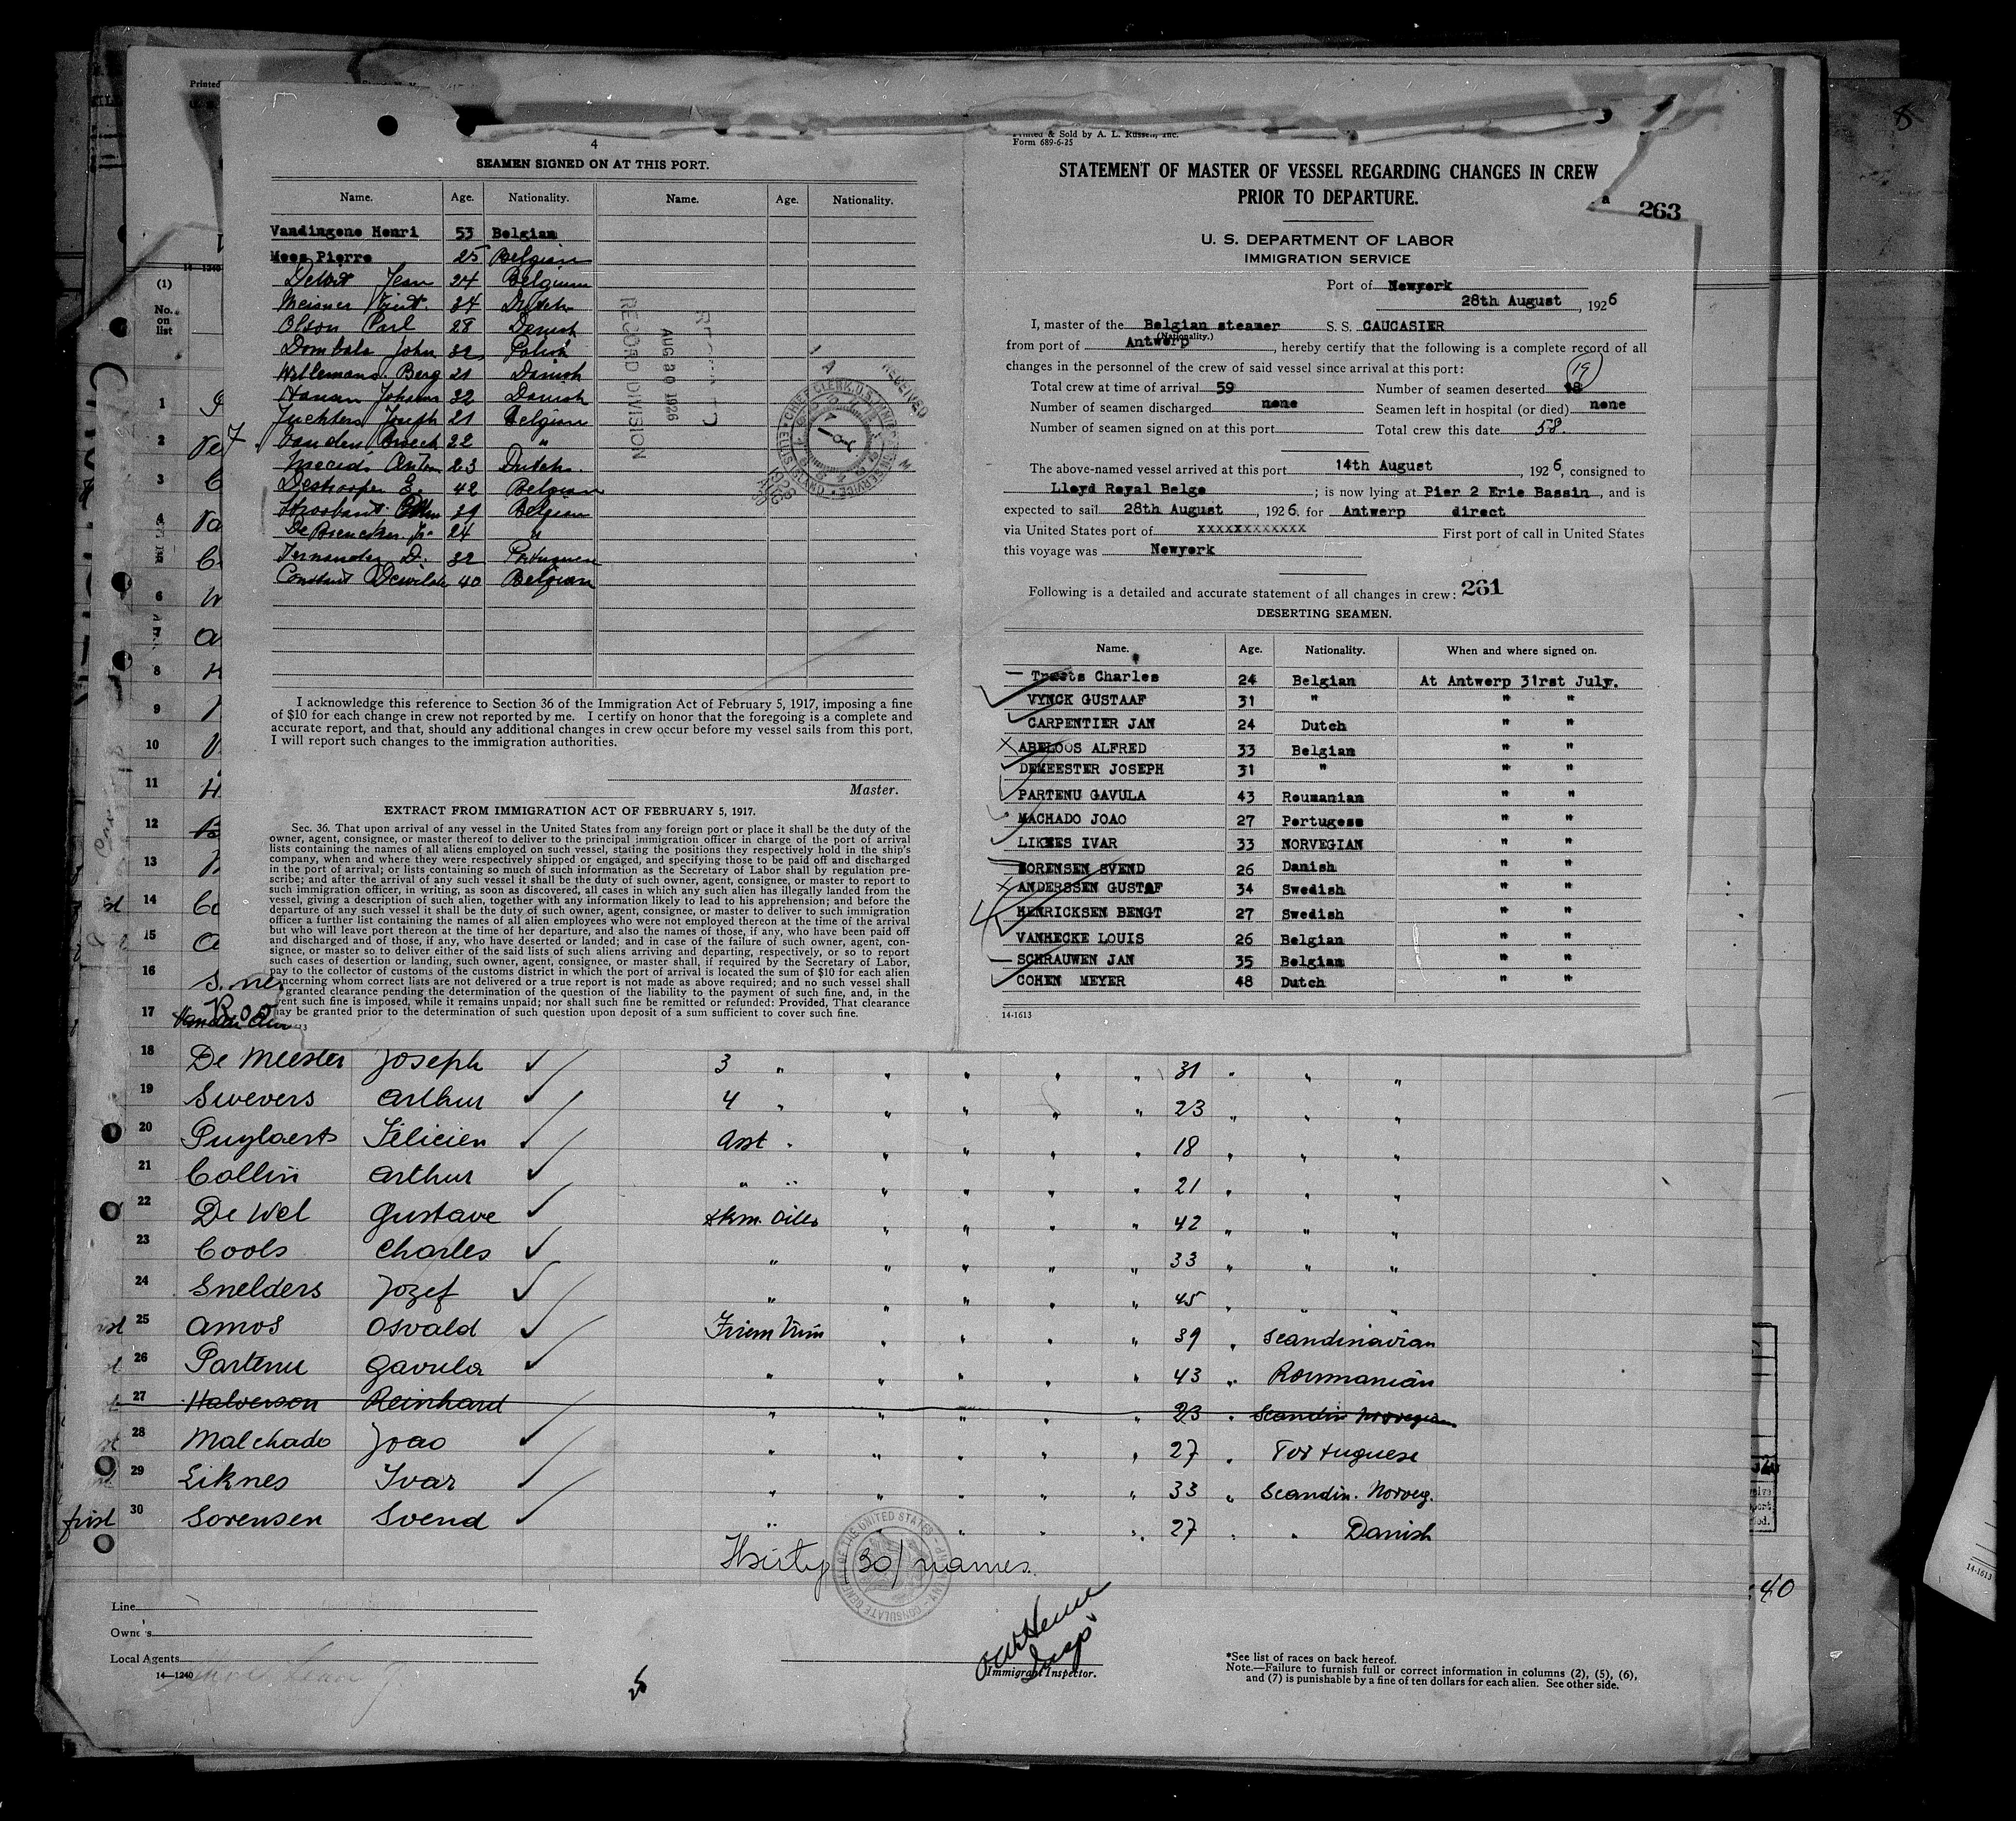 4
SEAMEN SIGNED ON AT THIS PORT.
Name. Age. Nationality. Name. Age. Nationality.
Vandingene Henri 53 Belgian
Mees Pierre 25 Belgian
Jean 24 Belgium
34 Dutch
Olson Carl 28 Danish
Dombala John 32 Polish
Willemans Berg 21 Danish
Hansen Johann 32 Danish
Juchters Joseph 21 Belgian
Vanden Broeck 22 "
23 Dutch.
42 Belgian
29 Belgian
24 "
Fernandez D. 32 Portuguese
Constant Dewilde 40 Belgian
RECORD DIVISION
AUG 30 1926
RECEIVED
I acknowledge this reference to Section 36 of the Immigration Act of February 5, 1917, imposing a fine
of $10 for each change in crew not reported by me. I certify on honor that the foregoing is a complete and
accurate report, and that, should any additional changes in crew occur before my vessel sails from this port,
I will report such changes to the immigration authorities.
Master.
EXTRACT FROM IMMIGRATION ACT OF FEBRUARY 5, 1917.
Sec. 36. That upon arrival of any vessel in the United States from any foreign port or place it shall be the duty of the
owner, agent, consignee, or master thereof to deliver to the principal immigration officer in charge of the port of arrival
lists containing the names of all aliens employed on such vessel, stating the positions they respectively hold in the ship's
company, when and where they were respectively shipped or engaged, and specifying those to be paid off and discharged
in the port of arrival; or lists containing so much of such information as the Secretary of Labor shall by regulation pre-
scribe; and after the arrival of any such vessel it shall be the duty of such owner, agent, consignee, or master to report to
such immigration officer, in writing, as soon as discovered, all cases in which any such alien has illegally landed from the
vessel, giving a description of such alien, together with any information likely to lead to his apprehension; and before the
departure of any such vessel it shall be the duty of such owner, agent, consignee, or master to deliver to such immigration
officer a further list containing the names of all alien employees who were not employed thereon at the time of the arrival
but who will leave port thereon at the time of her departure, and also the names of those, if any, who have been paid off
and discharged and of those, if any, who have deserted or landed; and in case of the failure of such owner, agent, con-
signee, or master so to deliver either of the said lists of such aliens arriving and departing, respectively, or so to report
such cases of desertion or landing, such owner, agent, consignee, or master shall, if required by the Secretary of Labor,
pay to the collector of customs of the customs district in which the port of arrival is located the sum of $10 for each alien
oncerning whom correct lists are not delivered or a true report is not made as above required; and no such vessel shall
granted clearance pending the determination of the question of the liability to the payment of such fine, and, in the
vent such fine is imposed, while it remains unpaid; nor shall such fine be remitted or refunded: Provided, That clearance
may be granted prior to the determination of such question upon deposit of a sum sufficient to cover such fine.
Printed & Sold by A. L. Russell, Inc.
Form 689-6-25
STATEMENT OF MASTER OF VESSEL REGARDING CHANGES IN CREW
PRIOR TO DEPARTURE.
a 263
U. S. DEPARTMENT OF LABOR
IMMIGRATION SERVICE
Port of Newyork
28th August, 1926
I, master of the Belgian steamer S. S. CAUCASIER
(Nationality.)
from port of Antwerp, hereby certify that the following is a complete record of all
changes in the personnel of the crew of said vessel since arrival at this port:
19
Total crew at time of arrival 59 Number of seamen deserted 18
Number of seamen discharged none Seamen left in hospital (or died) none
Number of seamen signed on at this port Total crew this date 58.
The above-named vessel arrived at this port 14th August, 1926, consigned to
Lloyd Royal Belge; is now lying at Pier 2 Erie Bassin, and is
expected to sail 28th August, 1926. for Antwerp direct
via United States port of xxxxxxxxxxxx First port of call in United States
this voyage was Newyork
Following is a detailed and accurate statement of all changes in crew: 261
DESERTING SEAMEN.
Name. Age. Nationality. When and where signed on.
Traets Charles 24 Belgian At Antwerp 31rst July.
VYNCK GUSTAAF 31 " " "
CARPENTIER JAN 24 Dutch " "
ABELOOS ALFRED 33 Belgian " "
DEMEESTER JOSEPH 31 " " "
PARTENU GAVULA 43 Roumanian " "
MACHADO JOAO 27 Portugese " "
LIKNES IVAR 33 NORVEGIAN " "
SORENSEN SVEND 26 Danish " "
ANDERSSEN GUSTAF 34 Swedish " "
HENRICKSEN BENGT 27 Swedish " "
VANHECKE LOUIS 26 Belgian " "
SCHRAUWEN JAN 35 Belgian " "
COHEN MEYER 48 Dutch " "
14-1613
(1)
No.
on
list
1
2
3
4
5
6
7
8
9
10
11
12
13
14
15
16
17
18 De Meester Joseph 3 " 31
19 Swevers Arthur 4 " 23
20 Puylaert Félicien Asst " 18
21 Collin Arthur " " 21
22 De Wel Gustave 42
23 Cools Charles " 33
24 Snelders Jozef " 45
25 Amos Osvald 39 Scandinavian
26 Partenu Gavula " 43 Roumanian
27 Halverson Reinhard " 23 Scandin Norvegian
28 Malchado Joao " 27 Portuguese
29 Liknes Ivar " 33 Scandin. Norveg.
first 30 Sorensen Svend " 27 " Danish
Thirty (30) names.
40
Line
Owners
Local Agents
14—1240
Immigrant Inspector.
*See list of races on back hereof.
Note.—Failure to furnish full or correct information in columns (2), (5), (6),
and (7) is punishable by a fine of ten dollars for each alien. See other side.
14-1613
8